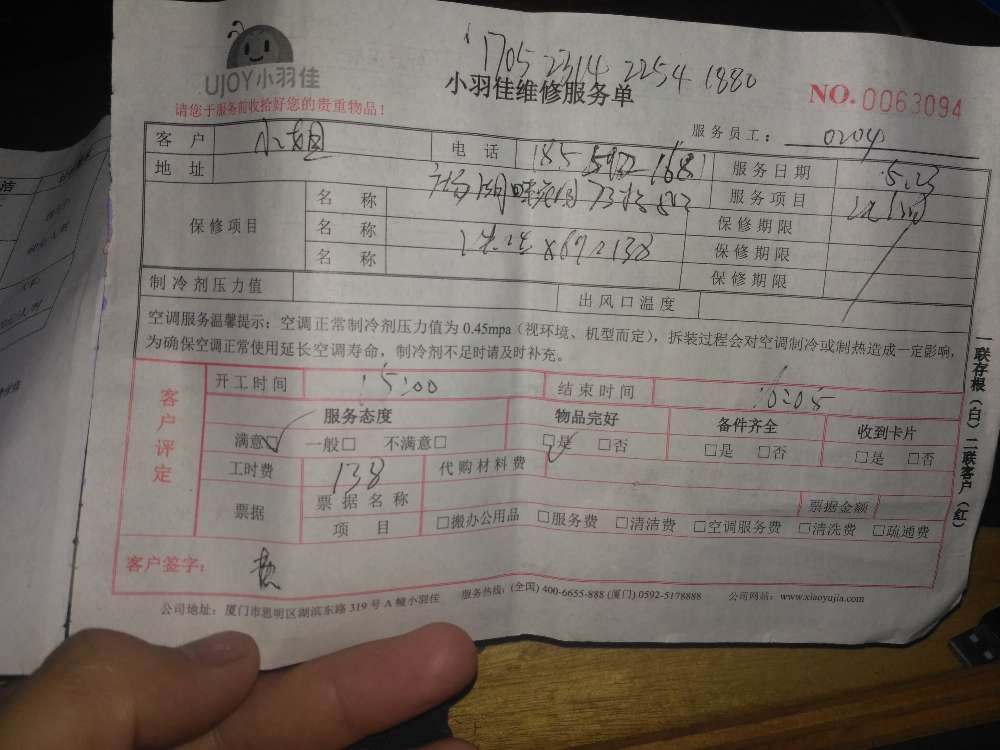 1705 2314 2254 1880
UJOY小羽佳
小羽佳维修服务单
NO.0063094
请您于服务前收拾好您的贵重物品！
服务员工： 0204
客 户 小姐 电 话 服务日期 5.23
地 址 服务项目
保修项目
名 称 保修期限
名 称 保修期限
名 称 保修期限
制冷剂压力值 出风口温度
空调服务温馨提示：空调正常制冷剂压力值为 0.45mpa（视环境、机型而定），拆装过程会对空调制冷或制热造成一定影响，
为确保空调正常使用延长空调寿命，制冷剂不足时请及时补充。
客户评定
开工时间 15:00 结束时间 16:05
服务态度 物品完好 备件齐全 收到卡片
满意□ 一般□ 不满意□ □是 □否 □是 □否 □是 □否
工时费 138 代购材料费
票据 票据名称 票据金额
项 目 □搬办公用品 □服务费 □清洁费 □空调服务费 □清洗费 □疏通费
客户签字：
一联存根（白）二联客户（红）
公司地址：厦门市思明区湖滨东路 319 号 A 幢小羽佳 服务热线：(全国) 400-6655-888 (厦门) 0592-5178888 公司网站：www.xiaoyujia.com